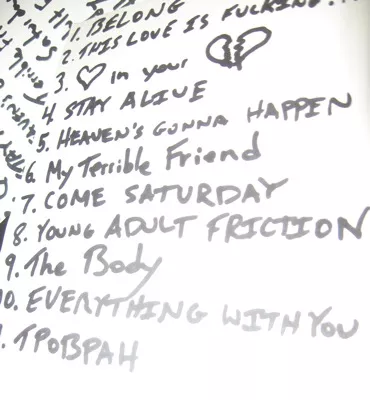 1. BELONG
2. THIS LOVE IS FUCKING...
3. ♡ in your 💔
4. STAY ALIVE
5. HEAVEN'S GONNA HAPPEN
6. My Terrible Friend
7. COME SATURDAY
8. YOUNG ADULT FRICTION
9. The Body
10. EVERYTHING WITH YOU
TPOBPAH